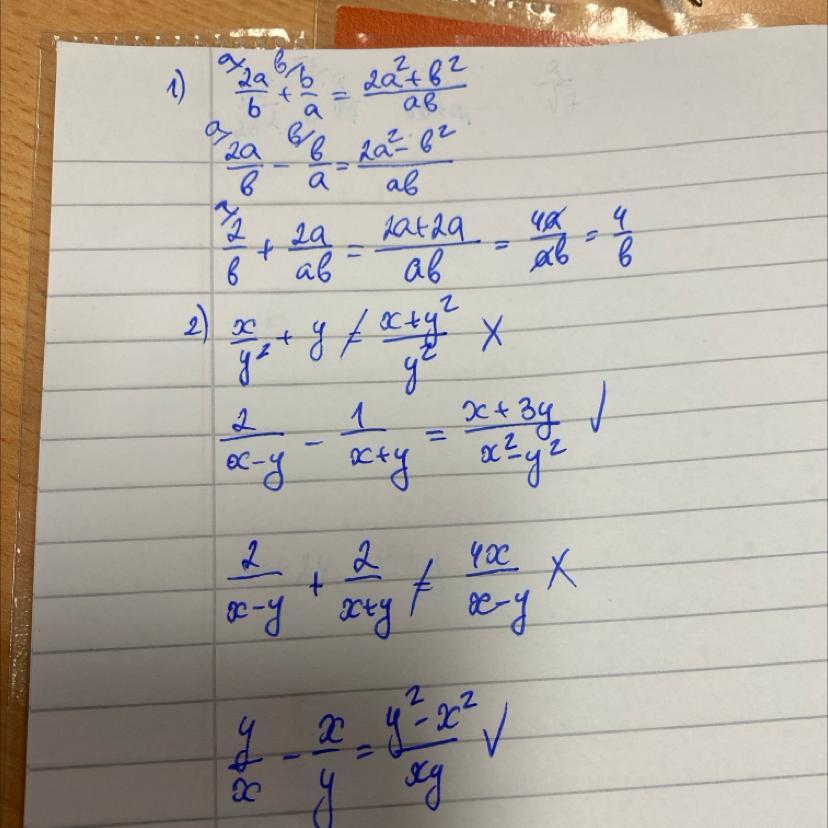 1) a/ 2a/b + b/ b/a = (2a²+b²)/ab
a/ 2a/b - b/ b/a = (2a²-b²)/ab
a/ 2/b + 2a/ab = (2a+2a)/ab = 4a/ab = 4/b
2) x/y² + y ≠ (x+y²)/y² ×
2/(x-y) - 1/(x+y) = (x+3y)/(x²-y²) ✓
2/(x-y) + 2/(x+y) ≠ 4x/(x-y) ×
y/x - x/y = (y²-x²)/xy ✓